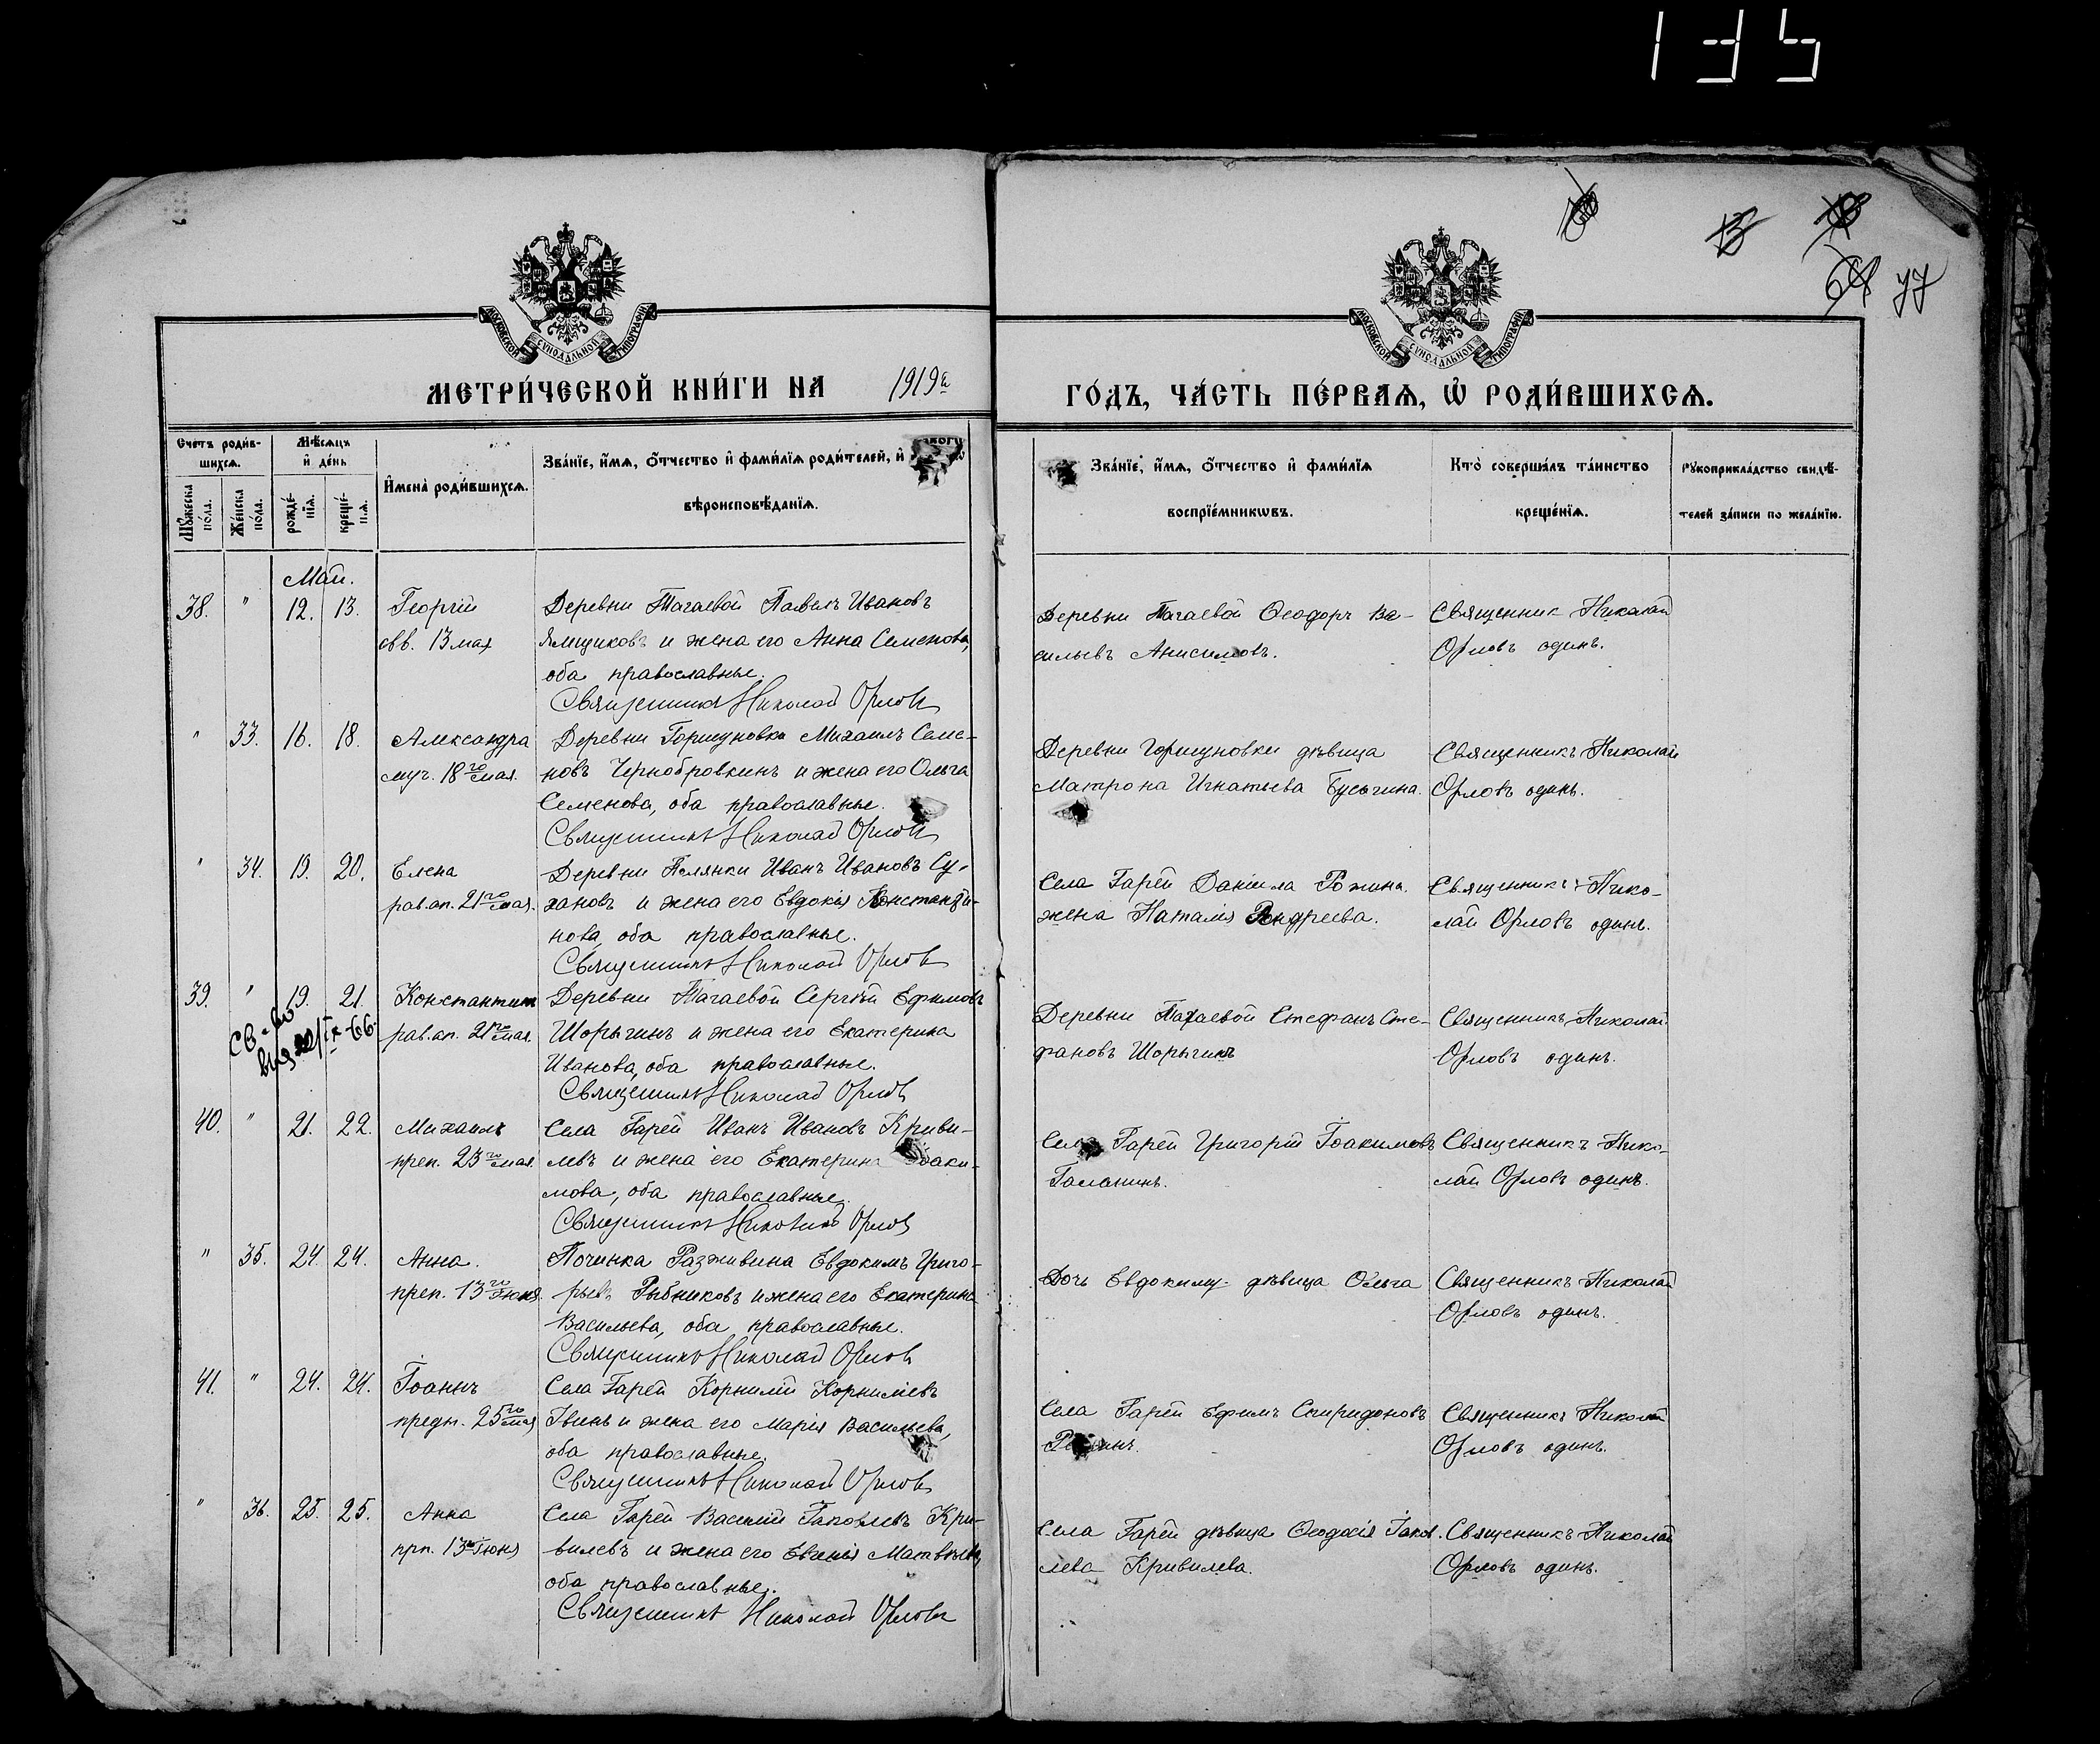 135
77
МОСКОВСКОЙ СУНОДАЛЬНОЙ ТИПОГРАФІИ
МОСКОВСКОЙ СУНОДАЛЬНОЙ ТИПОГРАФІИ
МЕТРИ́ЧЕСКОЙ КНИ́ГИ НА 1919й ГО́ДЪ, ЧА́СТЬ ПЕ́РВАѦ, Ѡ҆ РОДИ́ВШИХСѦ.
Счетъ роди́в-
шихсѧ.
Мꙋжеска по́ла.
Же́нска по́ла.
Мѣ́сѧцъ
и҆ де́нь
рожде́-
нїѧ.
креще́-
нїѧ.
И҆мена̀ роди́вшихсѧ.
Зва́нїе, и҆́мѧ, ѻ҆́тчество и҆ фами́лїѧ роди́телей, и҆
вѣроисповѣ́данїѧ.
Зва́нїе, и҆́мѧ, ѻ҆́тчество и҆ фами́лїѧ
воспрїе́мникѡвъ.
Кто̀ соверша́лъ та́инство
креще́нїѧ.
Рꙋкоприкла́дство свидѣ́-
телей за́писи по жела́нїю.
Май.
38. " 12. 13. Георгій
овв. 13 мая
Деревни Тагаевой Павелъ Ивановъ
Ямщиковъ и жена его Анна Семенова,
оба православные.
Священникъ Николай Орловъ
Деревни Тагаевой Ѳеодоръ Ва-
сильевъ Анисимовъ.
Священник Николай
Орловъ одинъ.
" 33. 16. 18. Александра
муч. 18го мая.
Деревни Горшуновки Михаилъ Семе-
новъ Чернобровкинъ и жена его Ольга
Семенова, оба православные.
Священникъ Николай Орловъ
Деревни Горшуновки дѣвица
Матрона Игнатьева Бусыгина.
Священникъ Николай
Орловъ одинъ.
" 34. 19. 20. Елена
рав.ап. 21го мая.
Деревни Полянки Иванъ Ивановъ Су-
хановъ и жена его Евдокія Константи-
нова, оба православные.
Священникъ Николай Орловъ
Села Гарей Даніила Рожина
жена Наталія Андреева.
Священникъ Нико-
лай Орловъ одинъ.
39. " 19. 21. Константинъ
рав.ап. 21го мая.
Св-во
Деревни Тагаевой Сергій Ефимовъ
Шорыгинъ и жена его Екатерина
Иванова, оба православные.
Священникъ Николай Орловъ
Деревни Тагаевой Стефанъ Сте-
фановъ Шорыгинъ
Священникъ Николай
Орловъ одинъ.
40. " 21. 22. Михаилъ
преп. 23го мая.
Села Гарей Иванъ Ивановъ Криви-
левъ и жена его Екатерина Іоаки-
мова, оба православные.
Священникъ Николай Орловъ
Села Гарей Григорій Іоакимовъ
Галанинъ.
Священникъ Нико-
лай Орловъ одинъ.
" 35. 24. 24. Анна.
преп. 13го Іюня.
Починка Разживина Евдокимъ Григо-
рьевъ Рыбниковъ и жена его Екатерина
Васильева, оба православные.
Священникъ Николай Орловъ
Дочь Евдокима дѣвица Ольга
Священникъ Николай
Орловъ одинъ.
41. " 24. 24. Іоаннъ
предт. 25го мая
Села Гарей Корнилій Корниліевъ
Ивинъ и жена его Марія Васильева,
оба православные.
Священникъ Николай Орловъ
Села Гарей Ефимъ Спиридоновъ
Священникъ Николай
Орловъ одинъ.
" 36. 25. 25. Анна
прп. 13го Іюня
Села Гарей Василій Іаковлевъ Кри-
вилевъ и жена его Евгенія Матвѣева,
оба православные.
Священникъ Николай Орловъ
Села Гарей дѣвица Ѳеодосія Іаков-
лева Кривилева.
Священникъ Николай
Орловъ одинъ.